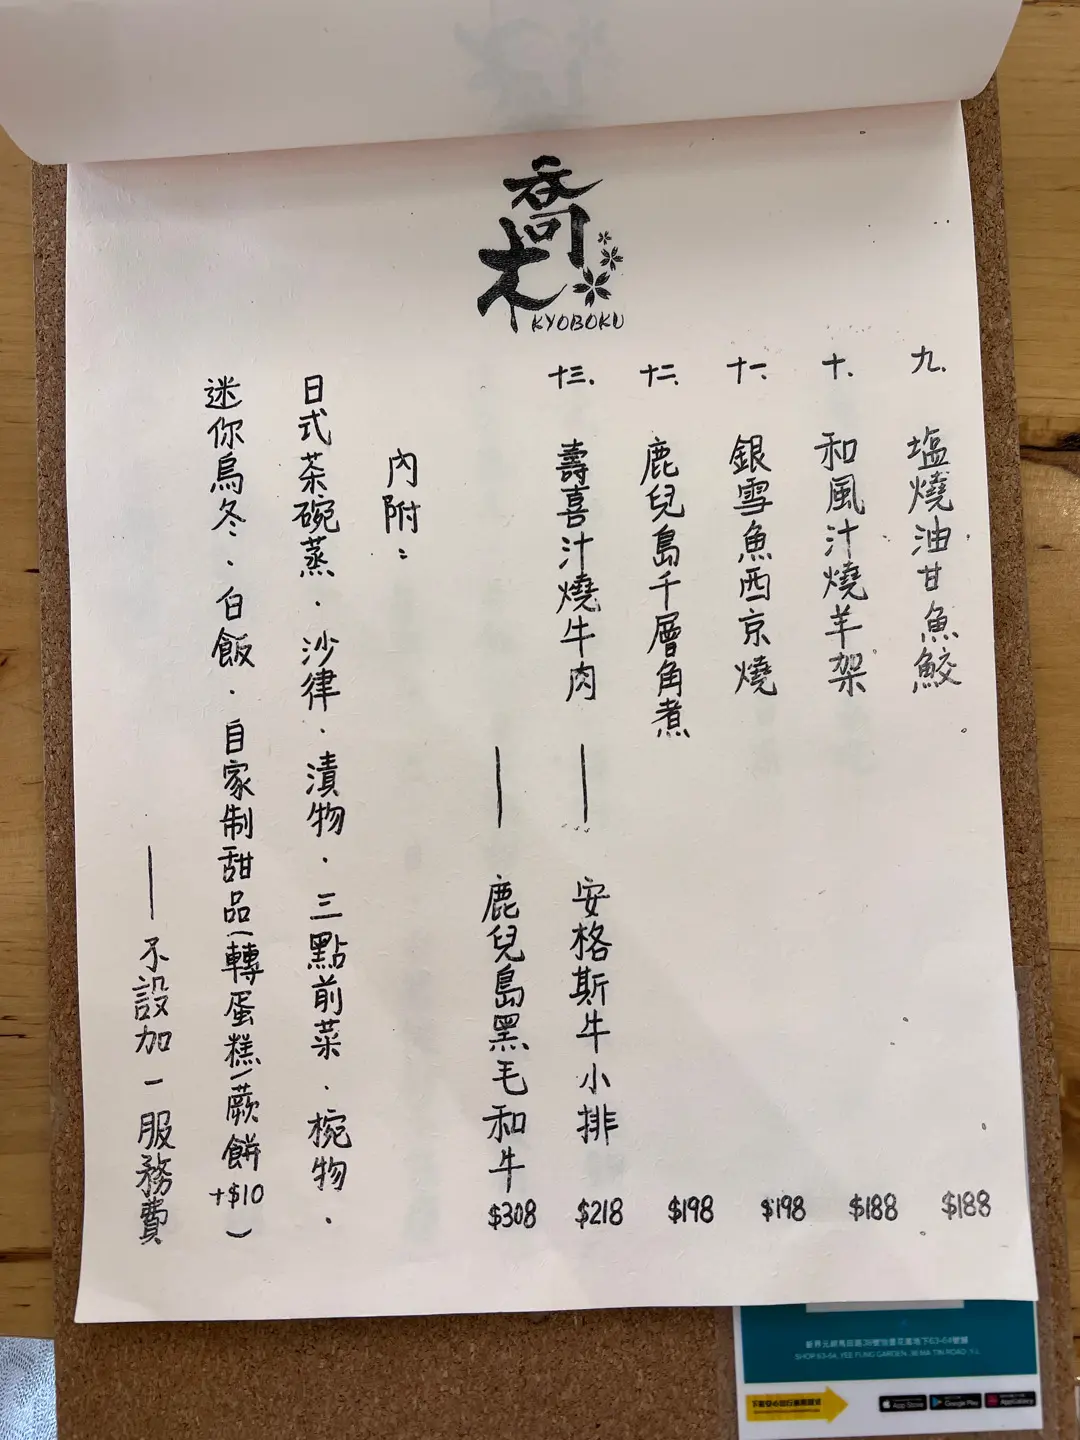 喬木
KYOBOKU
九. 塩燒油甘魚鮫 $188
十. 和風汁燒羊架 $188
十一. 銀雪魚西京燒 $198
十二. 鹿兒島千層角煮 $198
十三. 壽喜汁燒牛肉 — 安格斯牛小排 $218
— 鹿兒島黑毛和牛 $308
內附：
日式茶碗蒸．沙律．漬物．三點前菜．椀物．
迷你烏冬．白飯．自家制甜品(轉蛋糕/蕨餅+$10)
— 不設加一服務費
SHOP 63-64, YEE FUNG GARDEN, 38 MA TIN ROAD, Y.L
App Store
Google Play
AppGallery